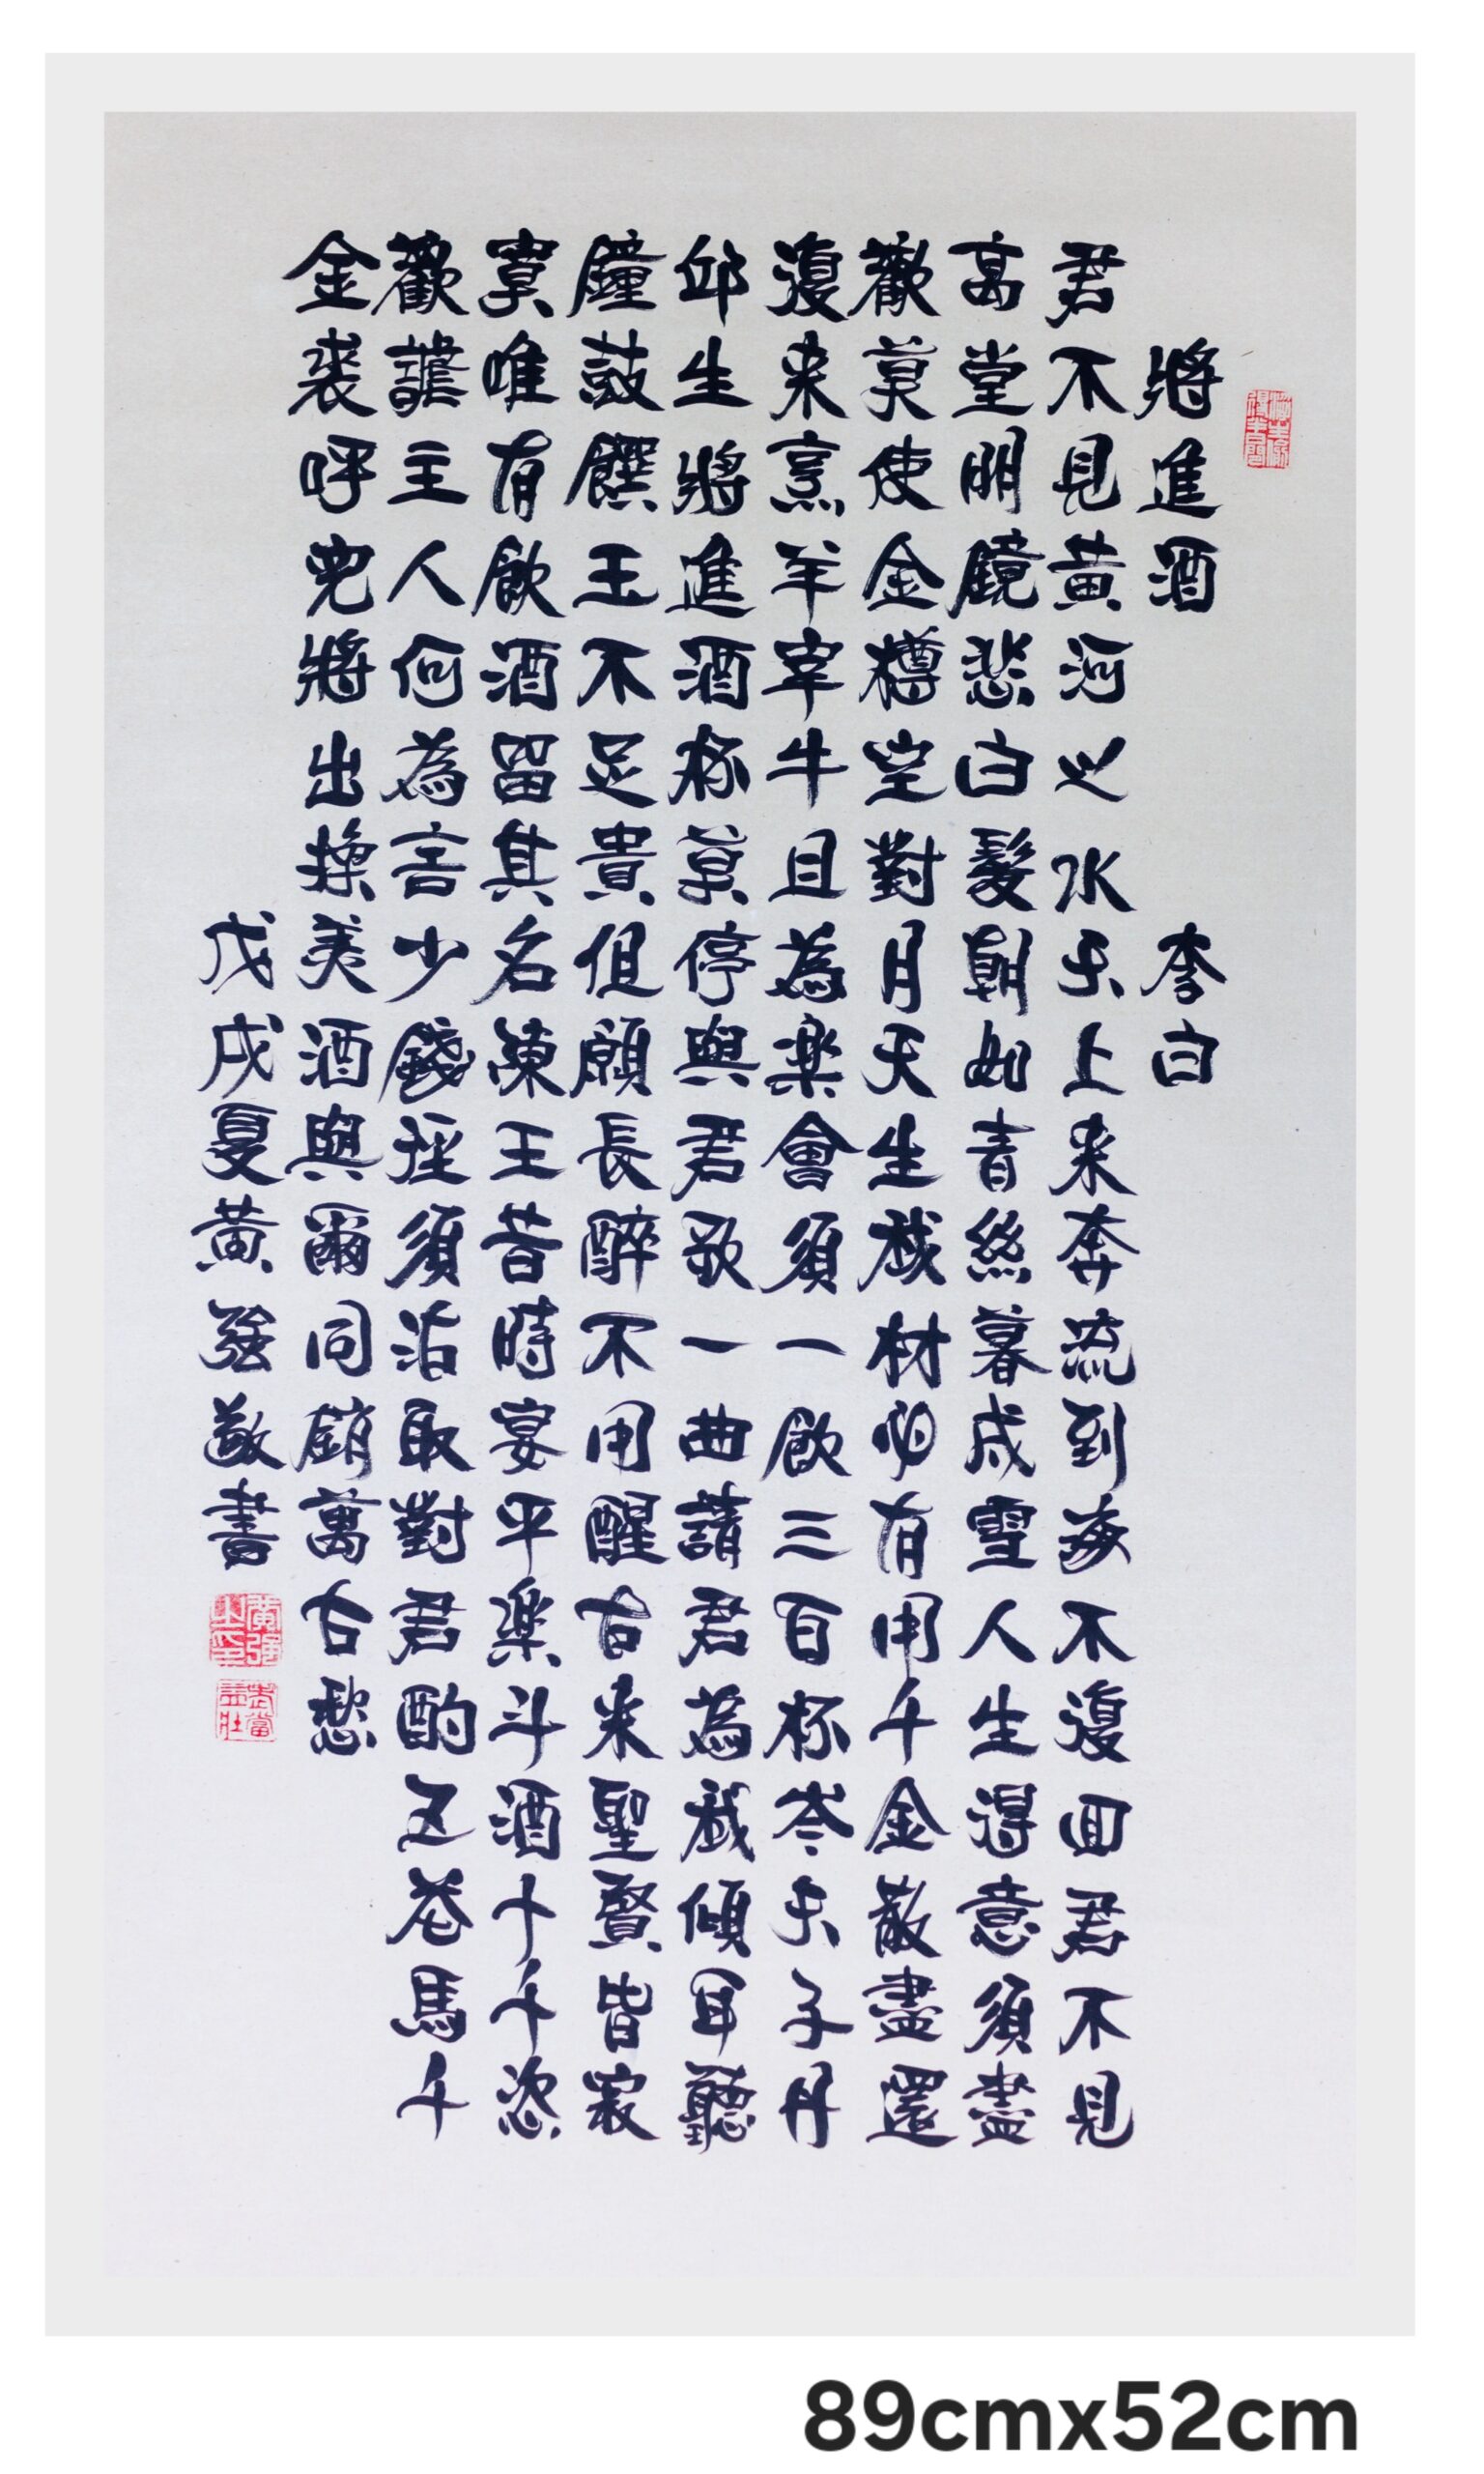 將進酒 李白
君不見黃河之水天上来奔流到海不復回君不見
高堂明鏡悲白髮朝如青絲暮成雪人生得意須盡
歡莫使金樽空對月天生我材必有用千金散盡還
復来烹羊宰牛且為楽會須一飲三百杯岑夫子丹
邱生將進酒杯莫停與君歌一曲請君為我傾耳聽
鐘鼓饌玉不足貴但願長醉不用醒古来聖賢皆寂
寞唯有飲酒留其名陳王昔時宴平楽斗酒十千恣
歡謔主人何為言少錢徑須沽取對君酌五花馬千
金裘呼兒將出換美酒與爾同銷萬古愁
戊戌夏黃強敬書
黄强之印
老當益壯
89cmx52cm